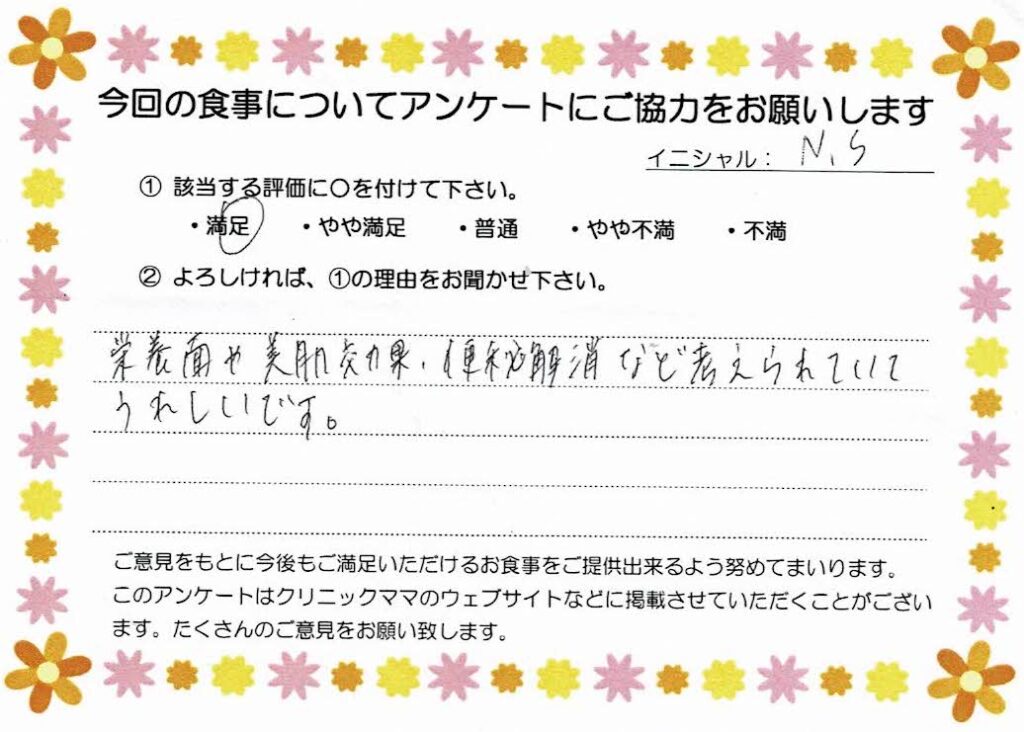 今回の食事についてアンケートにご協力をお願いします
イニシャル： N.S
① 該当する評価に〇を付けて下さい。
・満足 ・やや満足 ・普通 ・やや不満 ・不満
② よろしければ、①の理由をお聞かせ下さい。
栄養面や美肌効果、便秘解消など考えられていて
うれしいです。
ご意見をもとに今後もご満足いただけるお食事をご提供出来るよう努めてまいります。
このアンケートはクリニックママのウェブサイトなどに掲載させていただくことがござい
ます。たくさんのご意見をお願い致します。